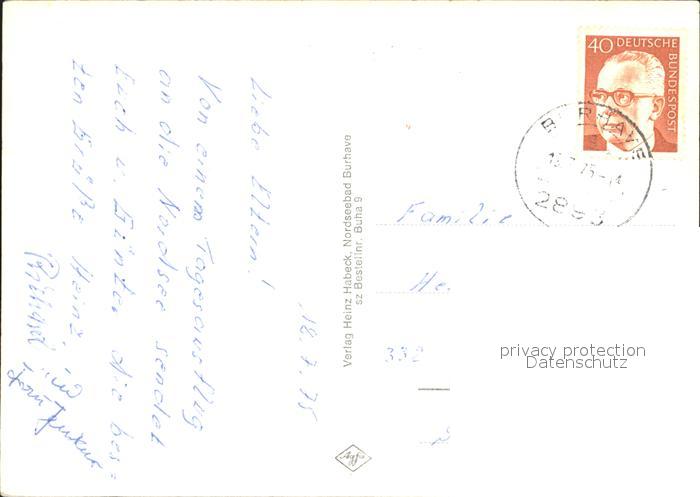 18.7.75
Liebe Eltern!
Von einem Tagesausflug
an die Nordsee sendet
Euch u. Günter die bes=
ten Grüße Heinz,
Verlag Heinz Habeck, Nordseebad Burhave
sz Bestellnr. Buha 9
Agfa
40 DEUTSCHE
BUNDESPOST
BURHAVE
2893
Familie
He
332
privacy protection
Datenschutz